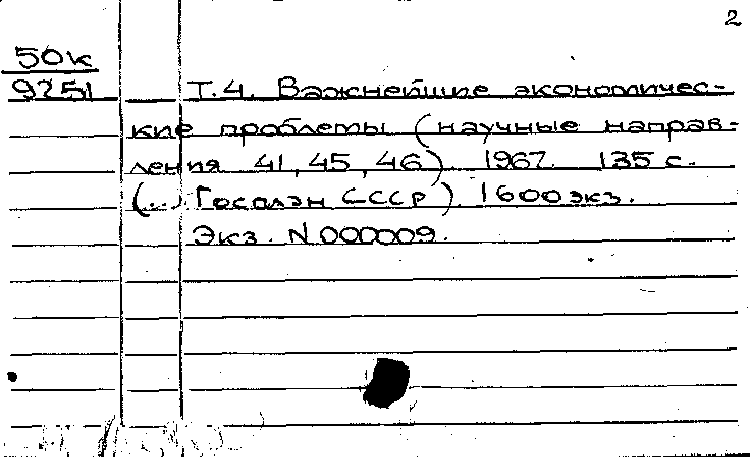 2
50к
9251
Т.4. Важнейшие экономичес-
кие проблемы (научные направ-
ления 41, 45, 46). 1967. 135 с.
(... Госплан СССР). 1600 экз.
Экз. N 000009.